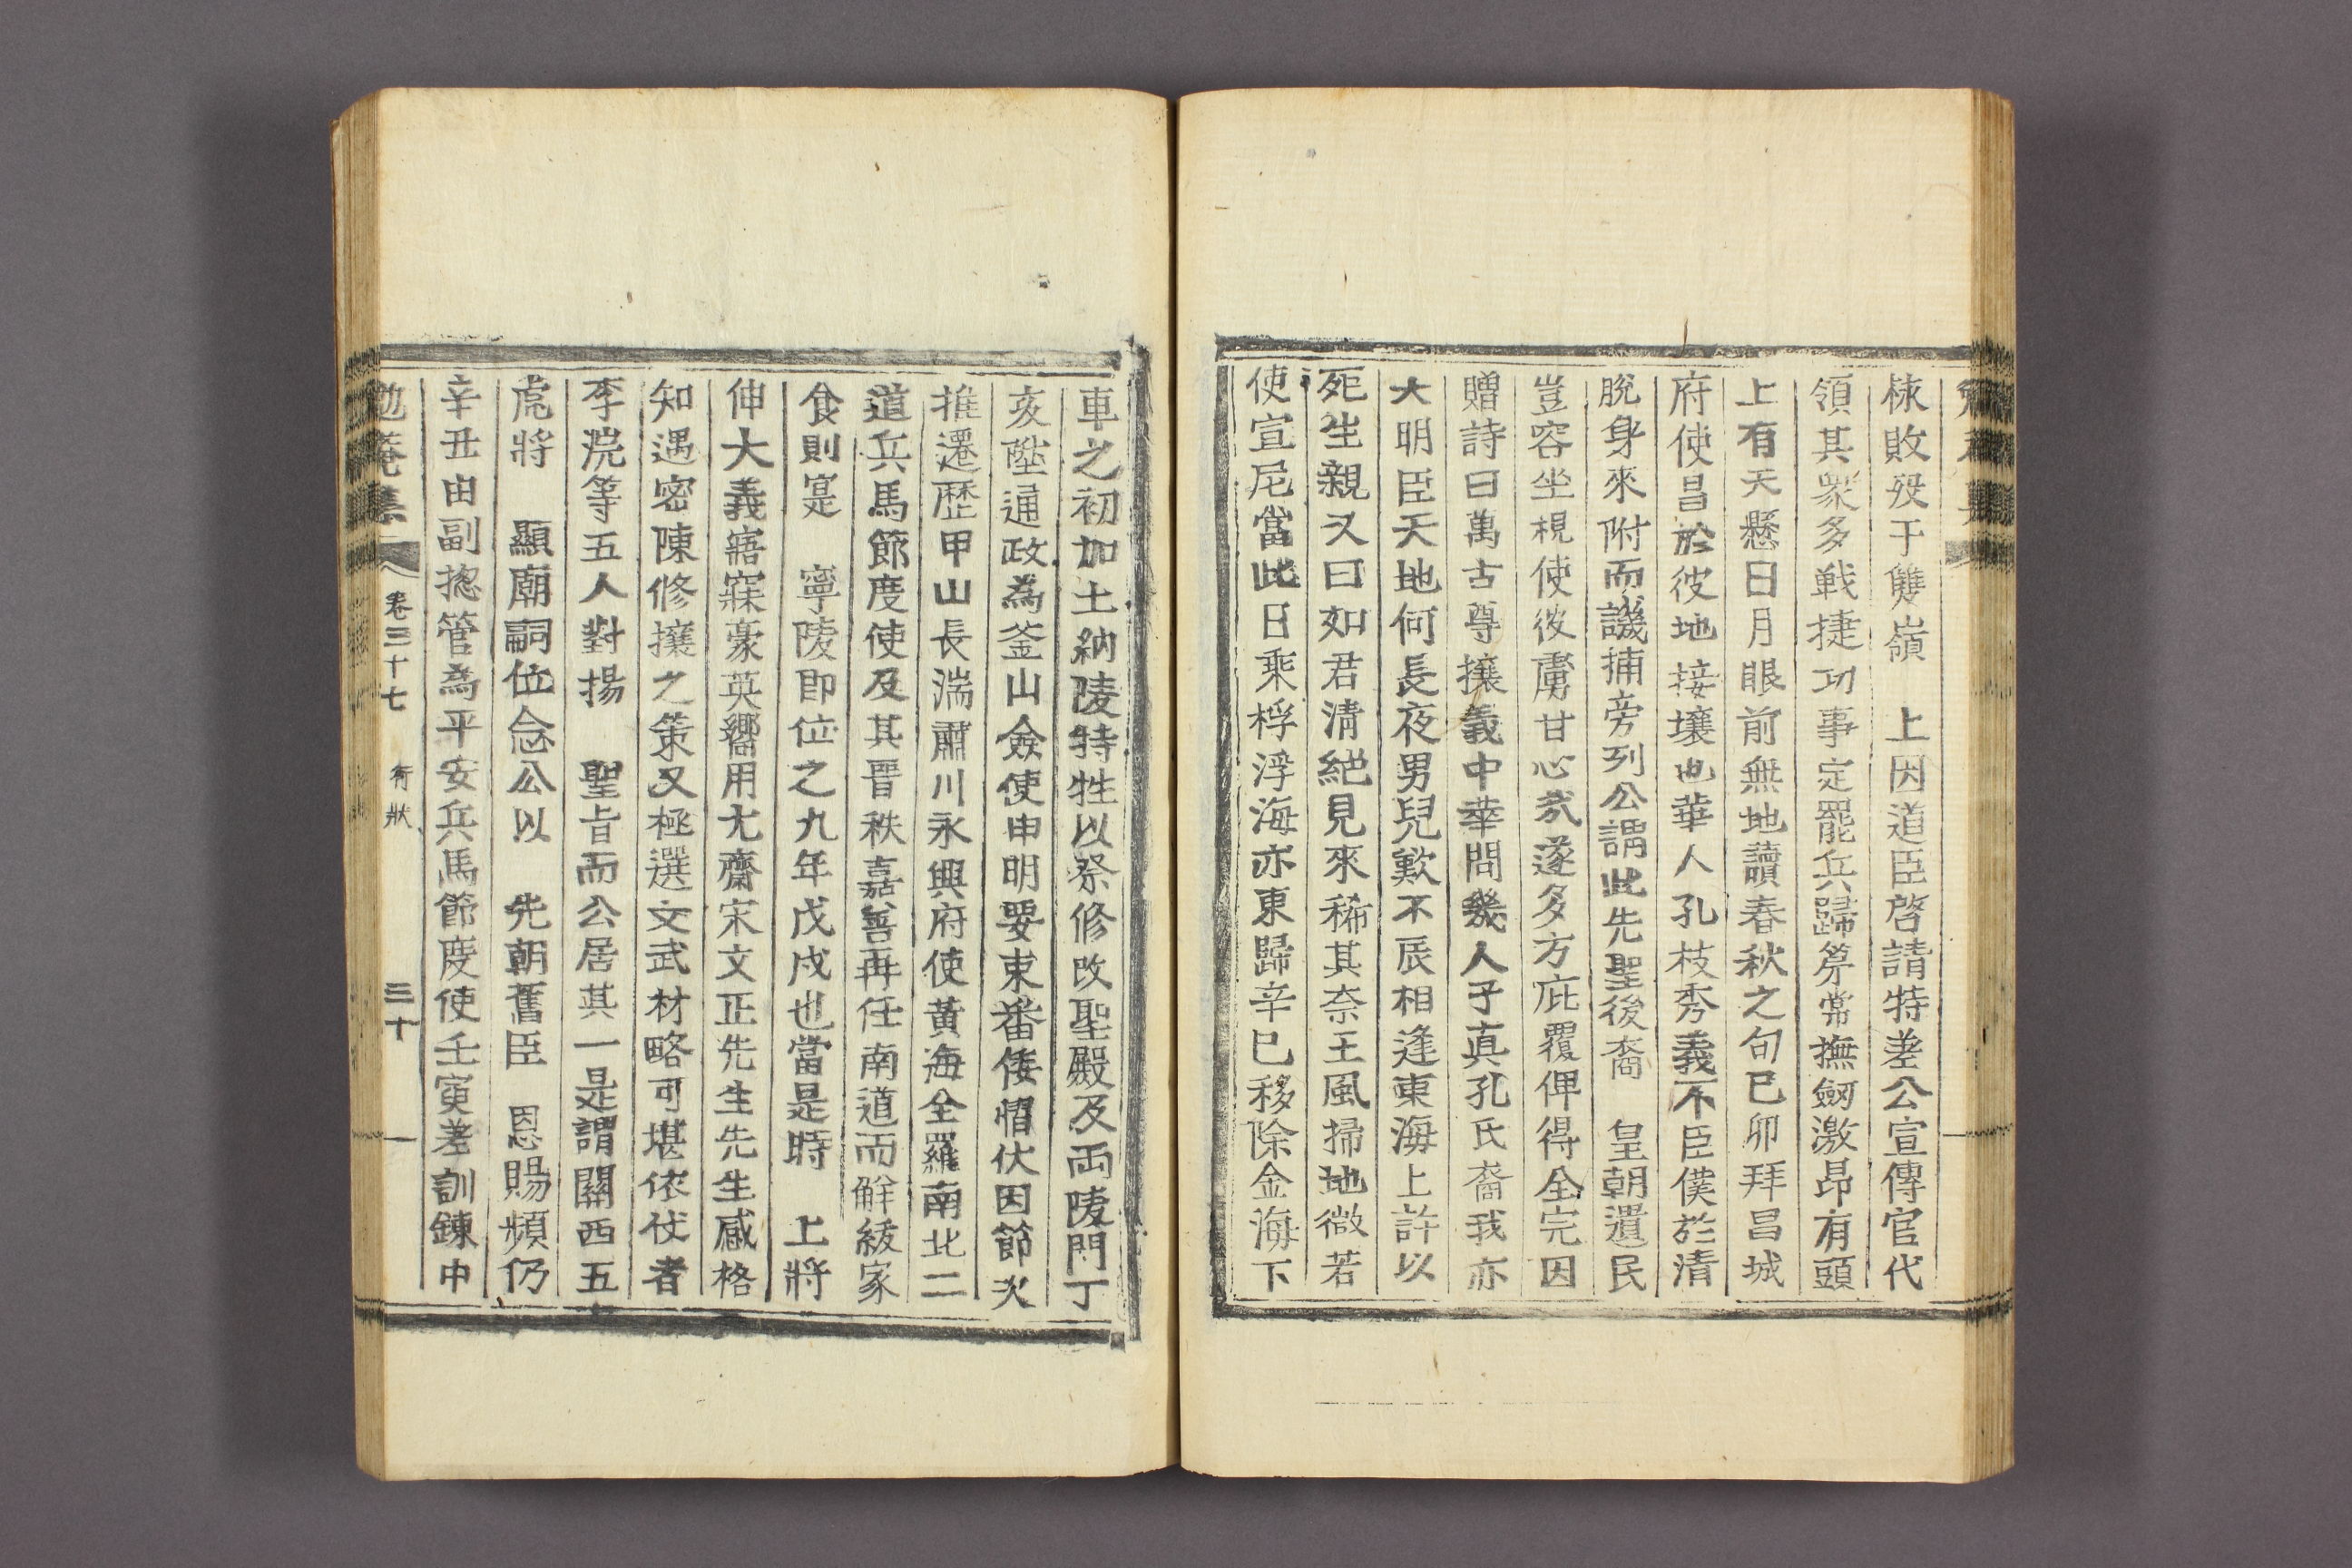 棶敗歿于雙嶺 上因道臣啓請特差公宣傳官代
領其衆多戰捷功事定罷兵歸筭常撫劒激昂有頭
上有天懸日月眼前無地讀春秋之句己卯拜昌城
府使昌於彼地接壤也華人孔枝秀義不臣僕於清
脫身來附而譏捕旁列公謂此先聖後裔 皇朝遺民
豈容坐視使彼虜甘心哉遂多方庇覆俾得全完因
贈詩曰萬古尊攘義中華問幾人子真孔氏裔我亦
大明臣天地何長夜男兒歎不辰相逢東海上許以
死生親又曰如君清絕見來稀其奈王風掃地微若
使宣尼當此日乘桴浮海亦東歸辛巳移除金海下
車之初加土納陵特牲以祭修改聖殿及両陵門丁
亥陞通政爲釜山僉使申明要束蕃倭慴伏因節次
推遷歷甲山長湍肅川永興府使黃海全羅南北二
道兵馬節度使及其晋秩嘉善再任南道而解綬家
食則寔 寧陵即位之九年戊戌也當是時 上將
伸大義寤寐豪英嚮用尤齋宋文正先生先生感格
知遇密陳修攘之策又極選文武材略可堪依仗者
李浣等五人對揚 聖旨而公居其一是謂關西五
虎將 顯廟嗣位念公以 先朝舊臣 恩賜頻仍
辛丑由副摠管爲平安兵馬節度使壬寅差訓鍊中
勉菴集 卷三十七 行狀 三十一